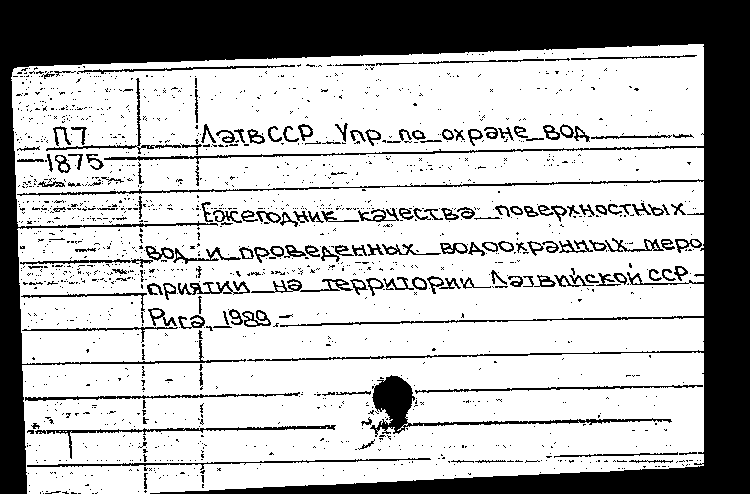 П7
1875
ЛатвССР Упр по охране вод
Ежегодник качества поверхностных
вод и проведенных водоохранных меро
приятий на территории Латвийской ССР.-
Рига, 1989.-